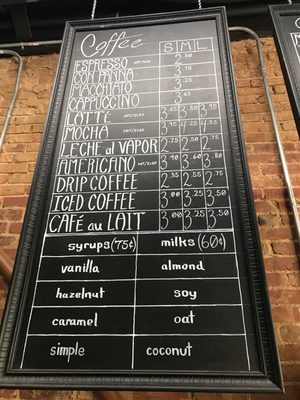 Coffee
S M L
ESPRESSO 2.50
CON PANNA 3.15
MACCHIATO 3.25
CAPPUCCINO 3.65
LATTÉ 3.65 3.80 3.95
MOCHA 3.95 4.25 4.55
LECHE al VAPOR 2.75 2.75 2.75
AMERICANO 3.40 3.60 3.80
DRIP COFFEE 2.35 2.55 2.75
ICED COFFEE 3.00 3.25 3.50
CAFÉ au LAIT 3.00 3.25 3.50
syrups (75¢) milks (60¢)
vanilla almond
hazelnut soy
caramel oat
simple coconut